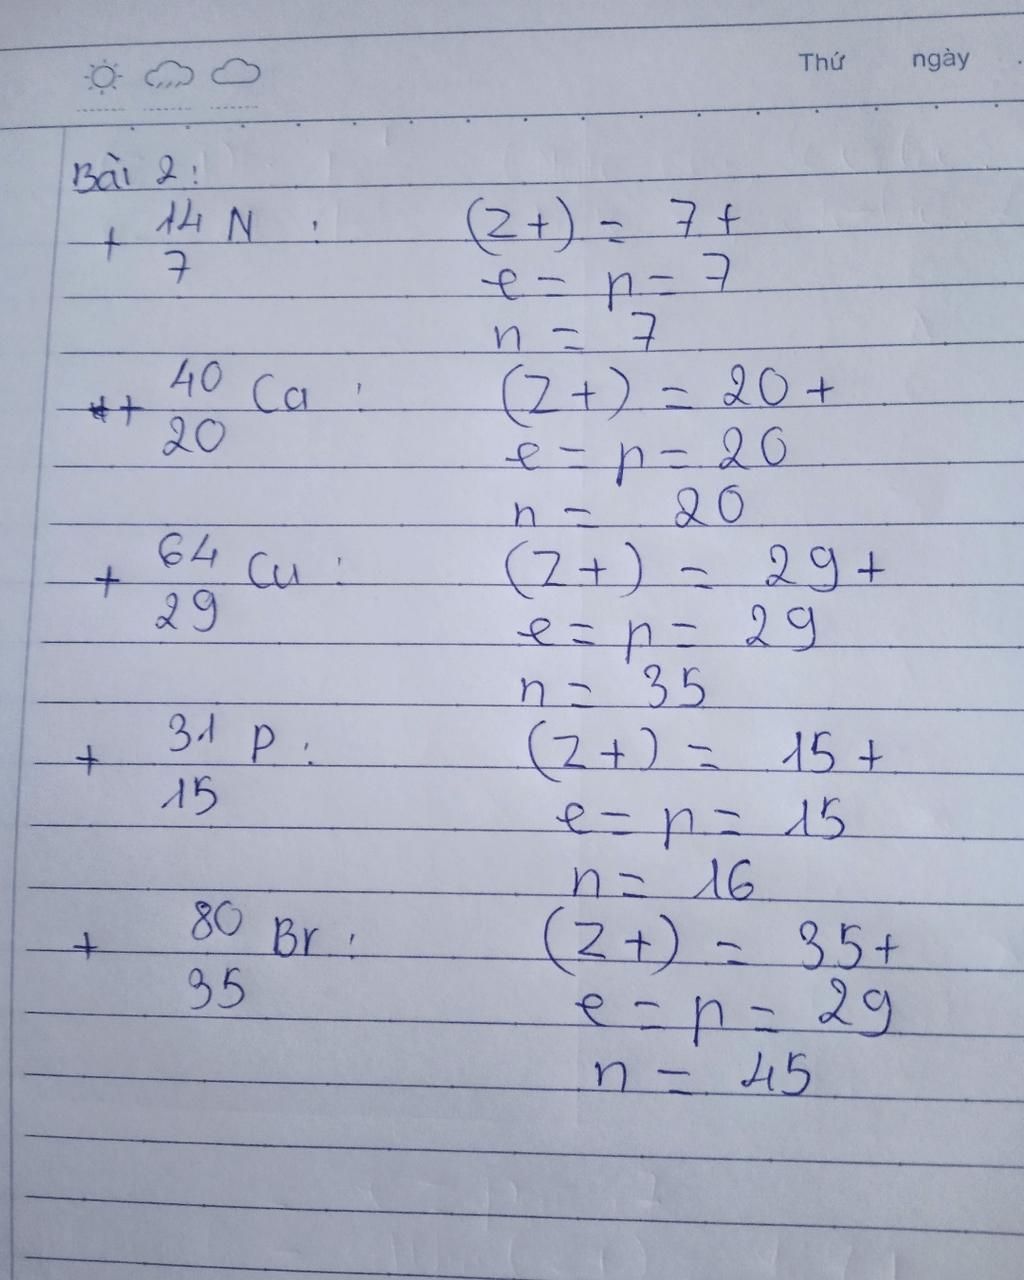 Thứ ngày
Bài 2:
+ 14 N : (Z+) = 7+
7 e = p = 7
n = 7
+ 40 Ca : (Z+) = 20+
20 e = p = 20
n = 20
+ 64 Cu : (Z+) = 29+
29 e = p = 29
n = 35
+ 31 P : (Z+) = 15+
15 e = p = 15
n = 16
+ 80 Br : (Z+) = 35+
35 e = p = 29
n = 45